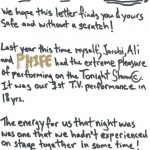 We hope this letter finds you & yours
Safe and without a scratch!
Last year this time myself, Jarobi, Ali
and PHIFE had the extreme pleasure
of performing on the Tonight Show ©.
It was our 1st T.V. performance in
18 yrs.
The energy for us that night was
was one that we hadn't experienced
on stage together in some time!